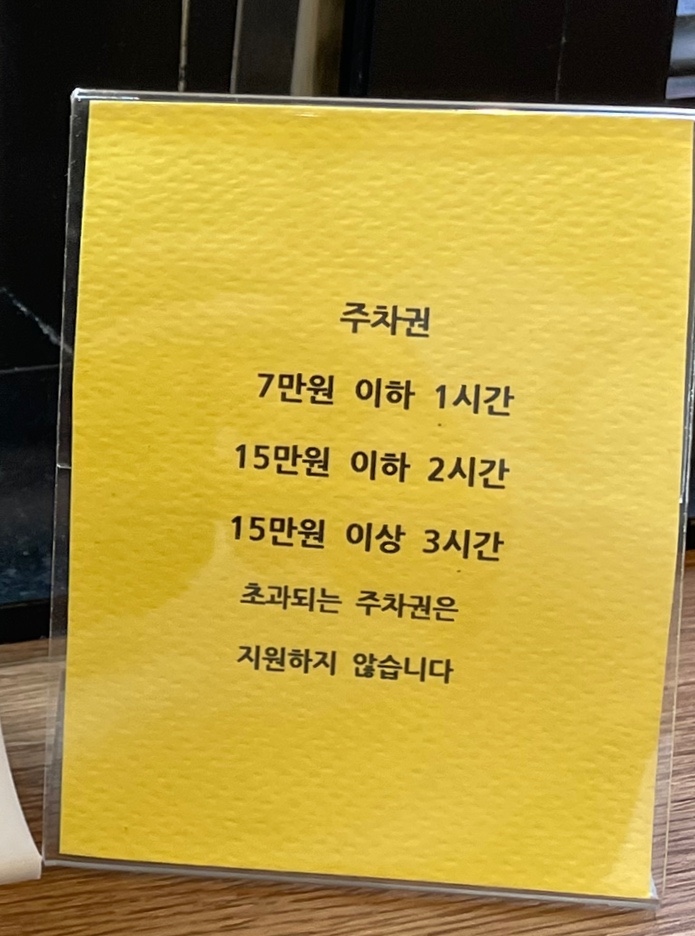 주차권
7만원 이하 1시간
15만원 이하 2시간
15만원 이상 3시간
초과되는 주차권은
지원하지 않습니다